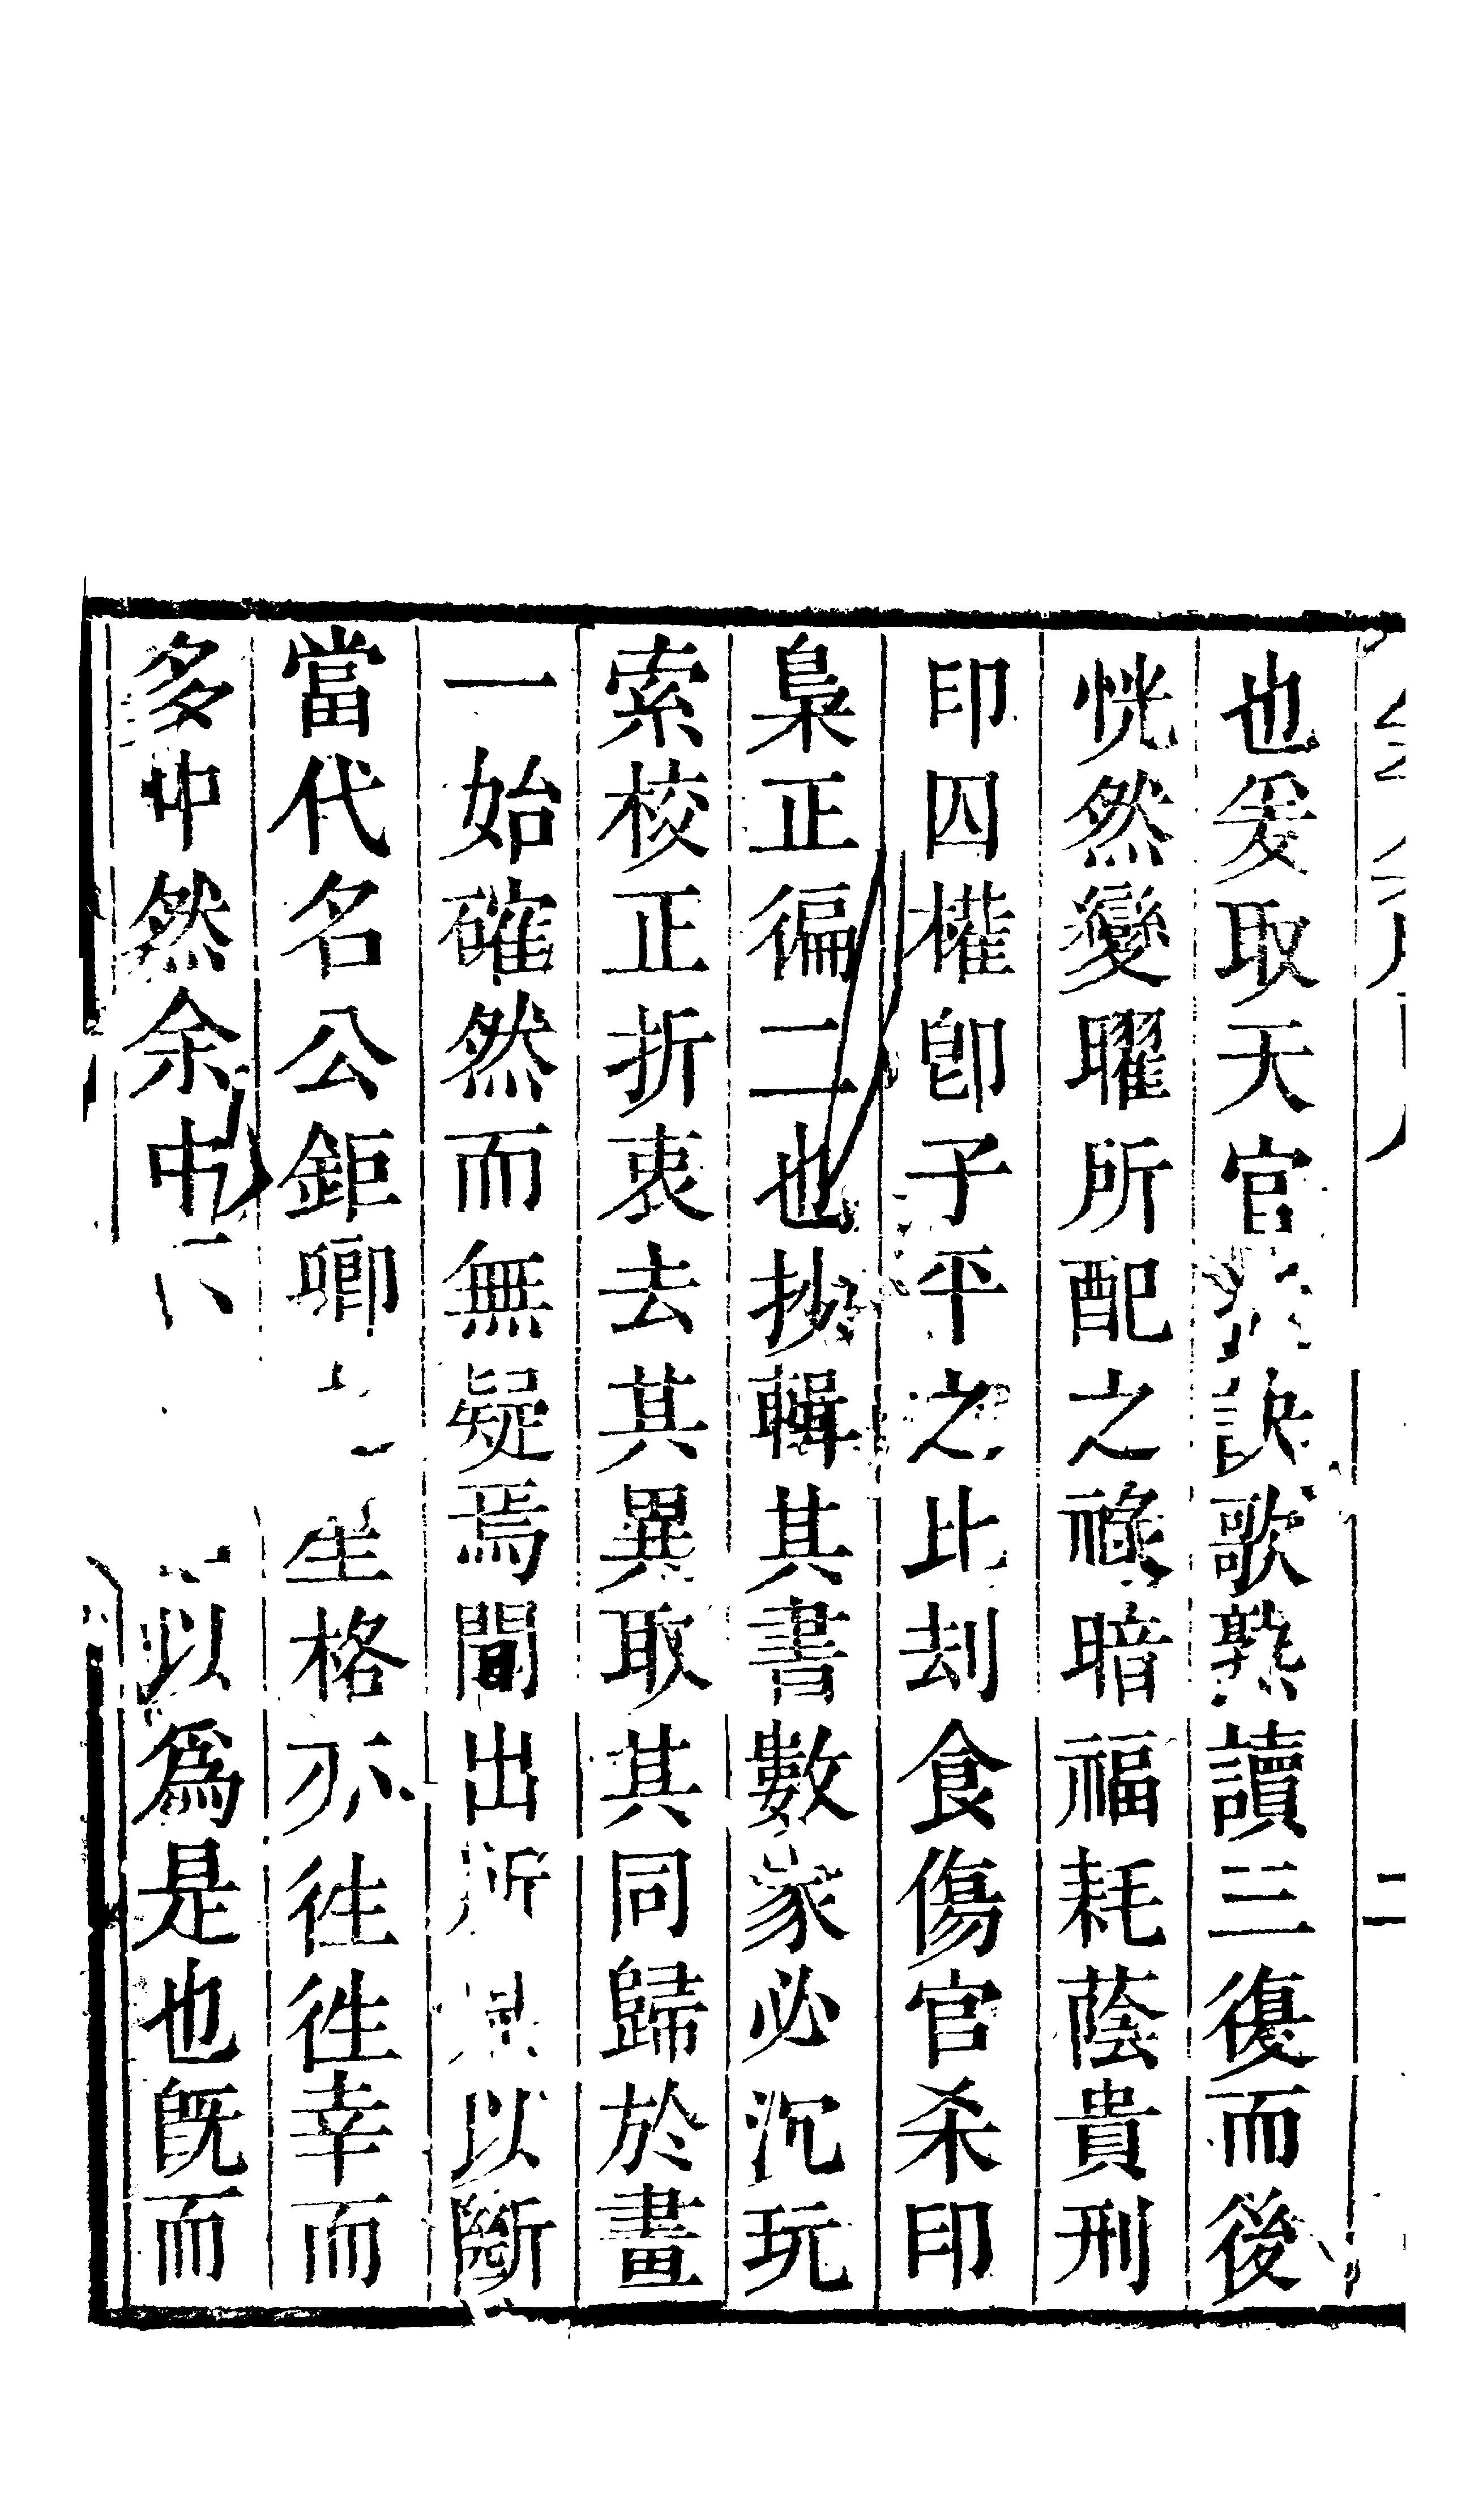 也爰取天官訣歌熟讀三復而後
恍然變曜所配之祿暗福耗蔭貴刑
印囚權卽子平之比刦食傷官杀印
梟正徧二也抄輯其書數家必沉玩
索校正折衷去其異取其同歸於畫
一始確然而無疑焉間出所以斷
當代名公鉅卿生格亦徃徃幸而
多中然余中以爲是也旣而
二